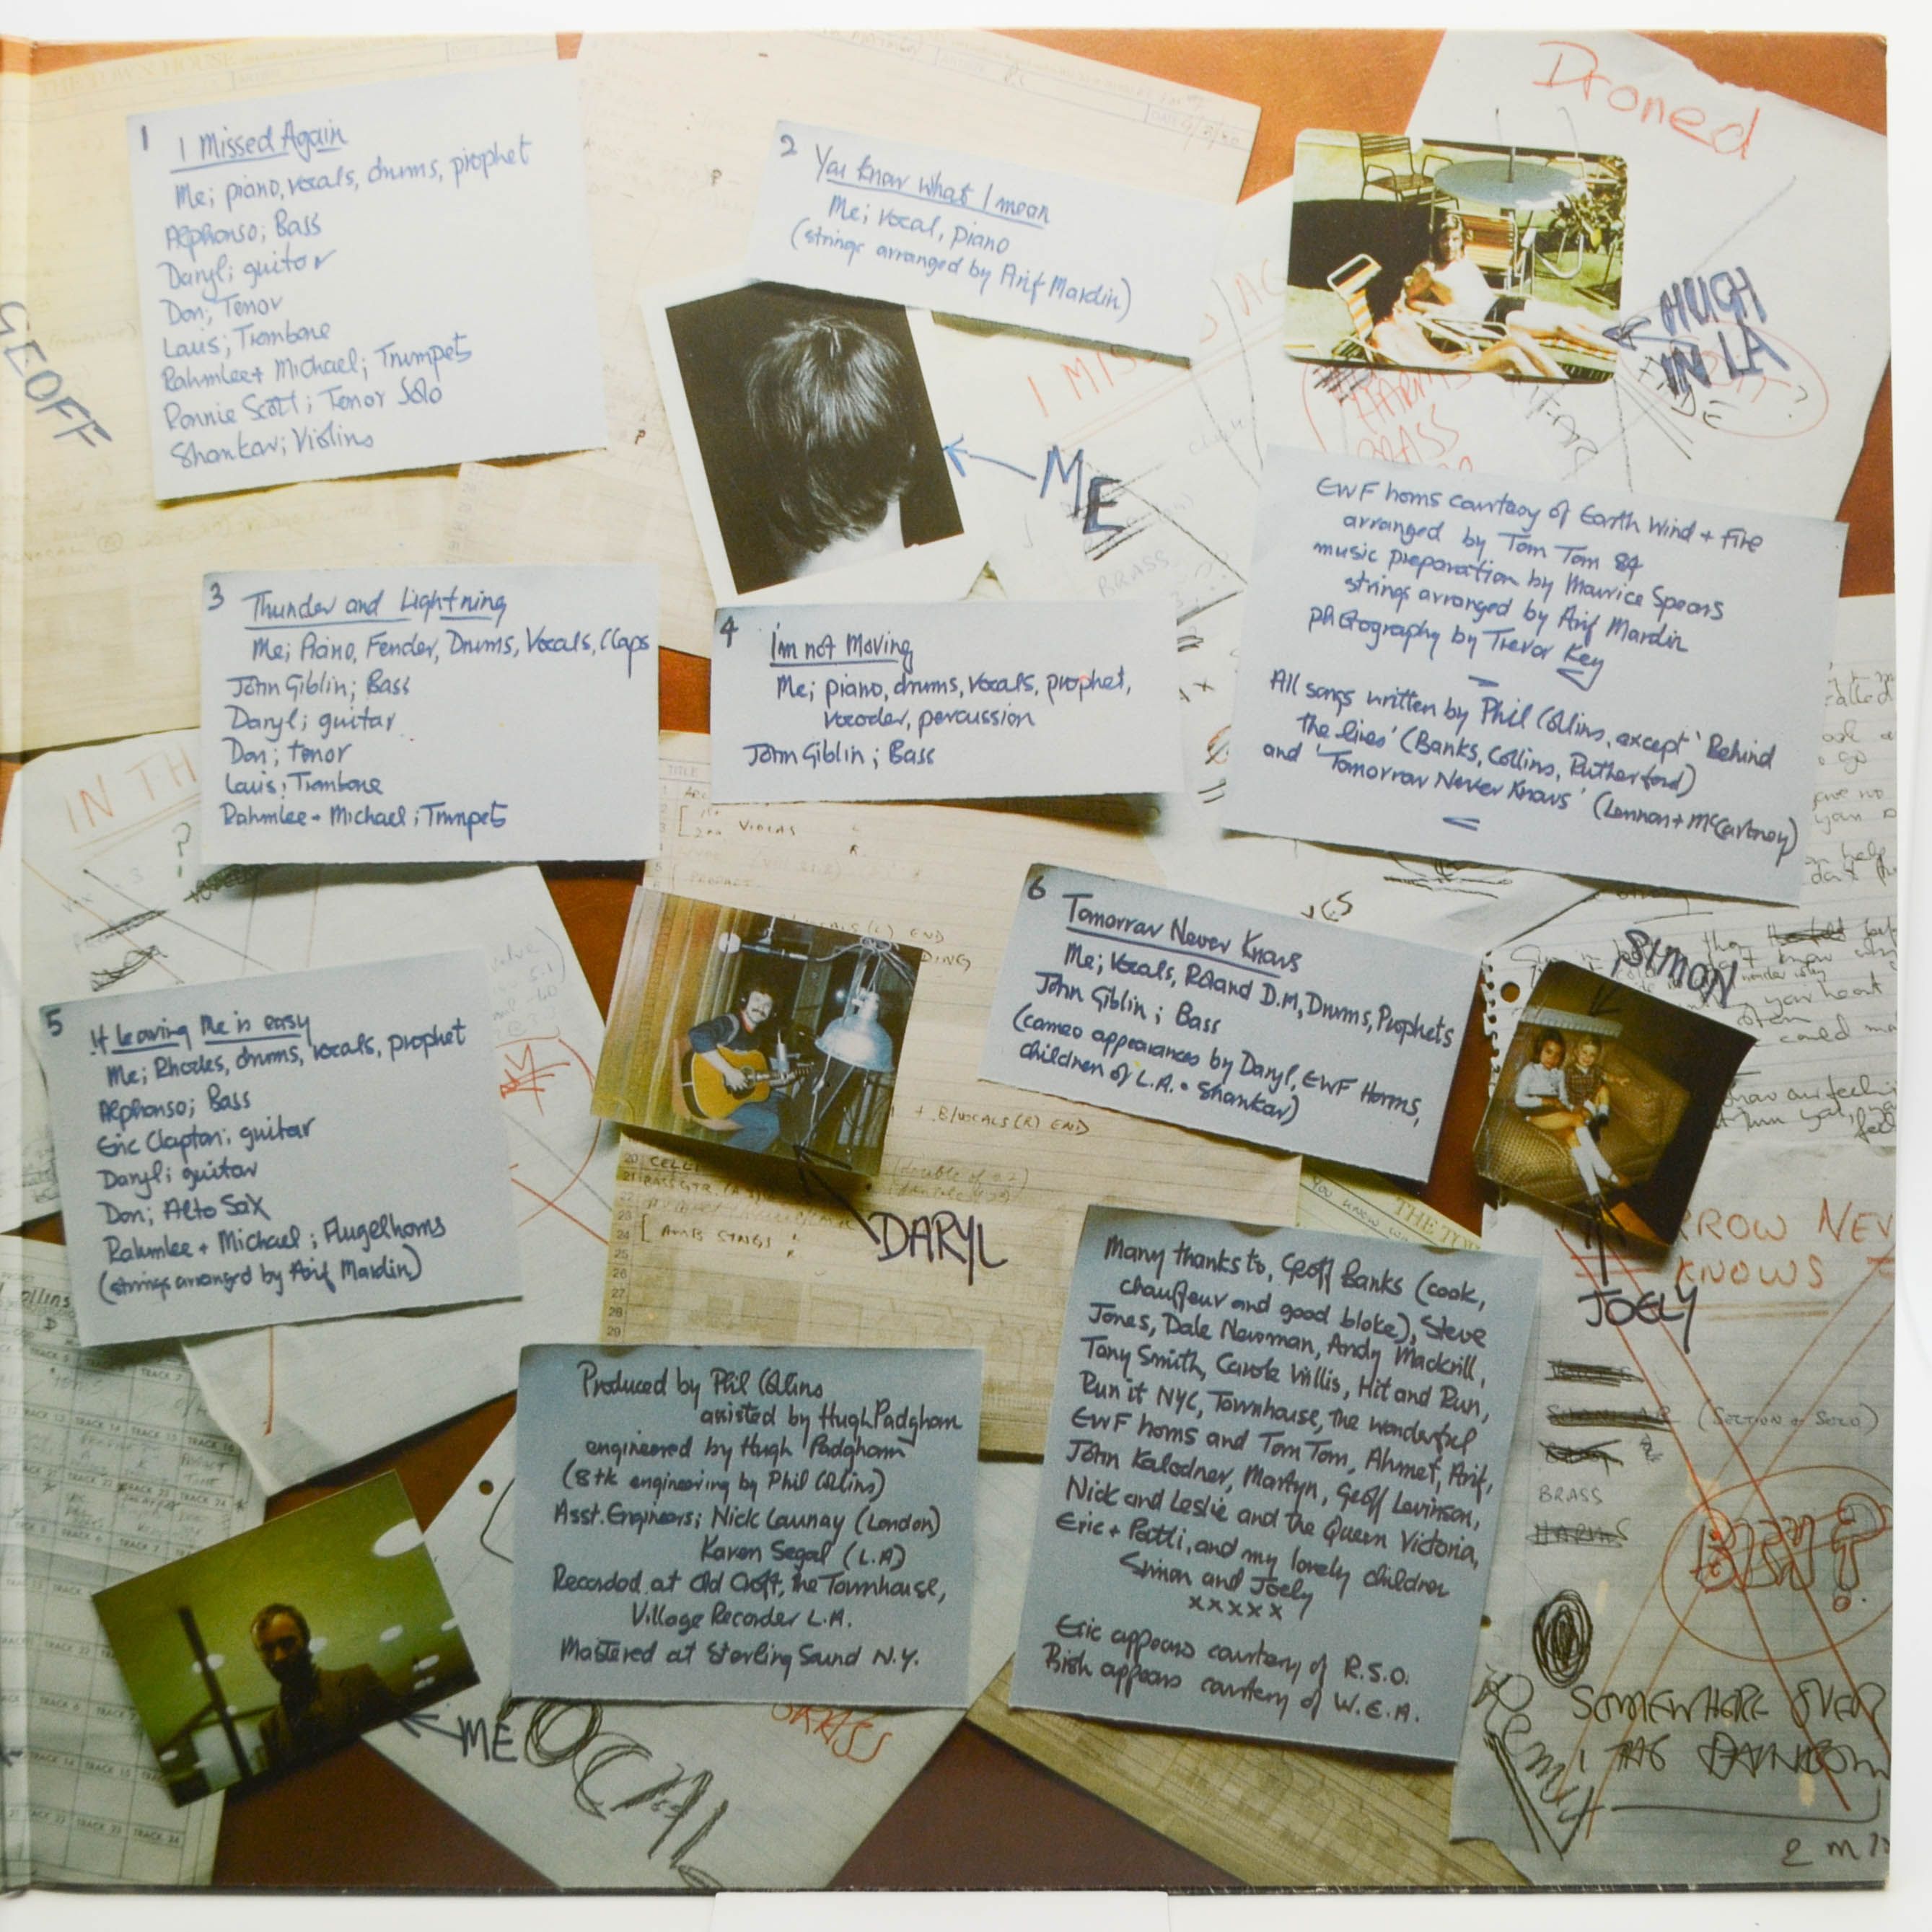 GEOFF
1 I Missed Again
Me; piano, vocals, drums, prophet
Alphonso; Bass
Daryl; guitar
Don; Tenor
Louis; Trombone
Rahmlee + Michael; Trumpets
Ronnie Scott; Tenor Solo
Shankar; Violins
2 You know what I mean
Me; vocal, piano
(strings arranged by Arif Mardin)
ME
Droned
HUGH
IN LA
EWF horns courtesy of Earth Wind + Fire
arranged by Tom Tom 84
music preparation by Maurice Spears
strings arranged by Arif Mardin
photography by Trevor Key
All songs written by Phil Collins, except 'Behind
the lines' (Banks, Collins, Rutherford)
and 'Tomorrow Never Knows' (Lennon + McCartney)
3 Thunder and Lightning
Me; Piano, Fender, Drums, Vocals, Claps
John Giblin; Bass
Daryl; guitar
Don; tenor
Louis; Trombone
Rahmlee + Michael; Trumpets
4 I'm not Moving
Me; piano, drums, vocals, prophet,
vocoder, percussion
John Giblin; Bass
IN TH
5 If leaving Me is easy
Me; Rhodes, drums, vocals, prophet
Alphonso; Bass
Eric Clapton; guitar
Daryl; guitar
Don; Alto Sax
Rahmlee + Michael; Flugelhorns
(strings arranged by Arif Mardin)
DARYL
6 Tomorrow Never Knows
Me; Vocals, Roland D.M, Drums, Prophets
John Giblin; Bass
(cameo appearances by Daryl, EWF Horns,
children of L.A. + Shankar)
SIMON
JOELY
RROW NEV
KNOWS
+ B/VOCALS (R) END
Produced by Phil Collins
assisted by Hugh Padgham
engineered by Hugh Padgham
(8tk engineering by Phil Collins)
Asst. Engineers; Nick Launay (London)
Karen Segal (L.A)
Recorded at Old Croft, the Townhouse,
Village Recorder L.A.
Mastered at Sterling Sound N.Y.
Many thanks to, Geoff Banks (cook,
chauffeur and good bloke), Steve
Jones, Dale Newman, Andy Mackrill,
Tony Smith, Carole Willis, Hit and Run,
Run it NYC, Townhouse, the wonderful
EWF horns and Tom Tom, Ahmet, Arif,
John Kalodner, Martyn, Geoff Levinson,
Nick and Leslie and the Queen Victoria,
Eric + Patti, and my lovely children
Simon and Joely
xxxxx
Eric appears courtesy of R.S.O.
Bish appears courtesy of W.E.A.
(SECTION & SOLO)
BRASS
ME
VOCAL
REMIX
SOMEWHERE OVER
THE RAINBOW